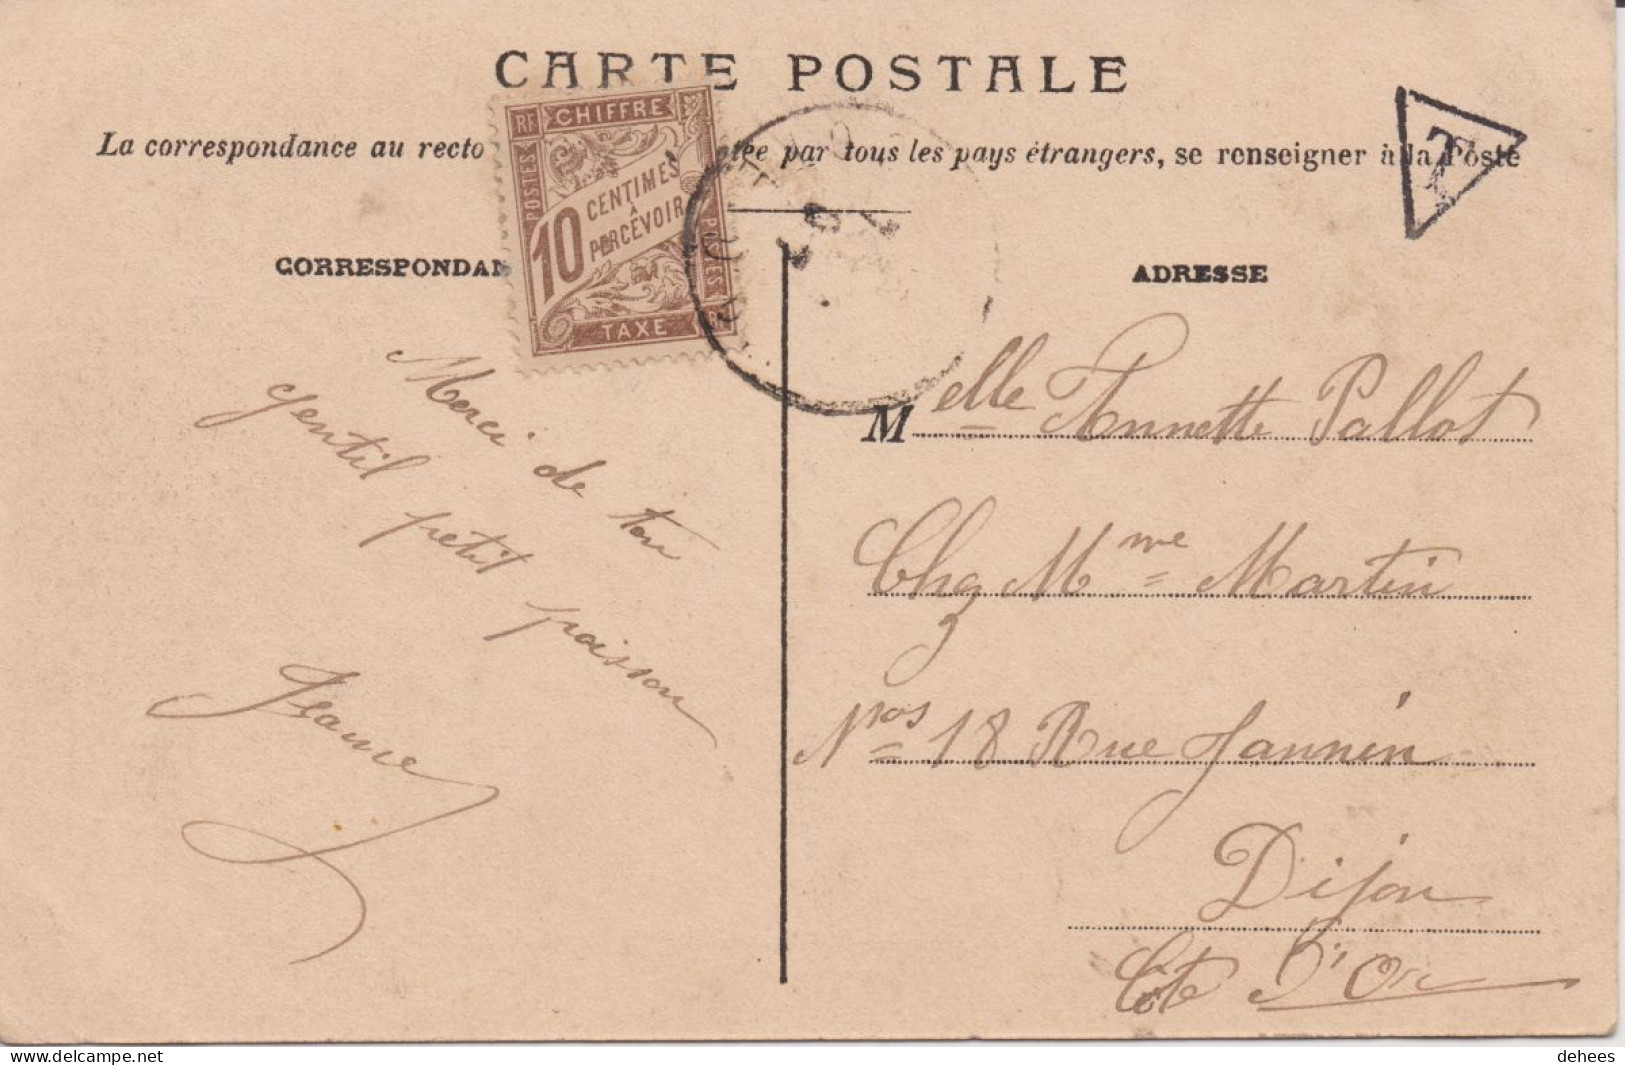 CARTE POSTALE
La correspondance au recto par tous les pays étrangers, se renseigner à la Poste
RF CHIFFRE
POSTES
10 CENTIMES
À
PERCEVOIR
POSTES
TAXE
T
CORRESPONDAN
ADRESSE
Merci de ton
gentil petit poisson
Jeanne
Melle Annette Pallot
Chez Mme Martin
Nos 18 Rue Jannin
Dijon
Côte D'Or
Delcampe.net
dehees